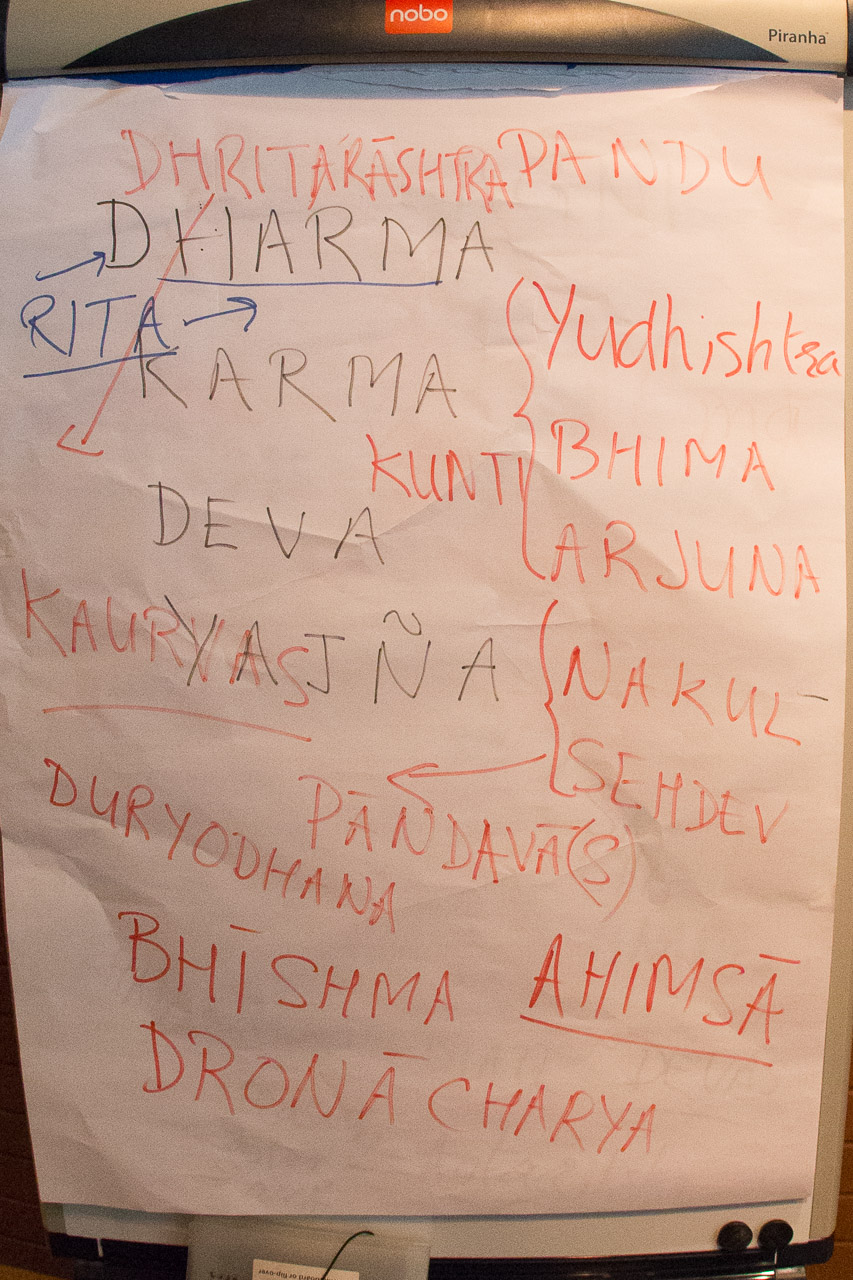 nobo
Piranha
DHRITARĀSHTRA PANDU
DHARMA
RITA
Yudhishtra
KARMA
KUNTI
BHIMA
DEVA
ARJUNA
KAURVAS
YAJÑA
NAKUL
SEHDEV
DURYODHANA
PĀNDAVĀ(S)
BHĪSHMA
AHIMSĀ
DRONĀCHARYA